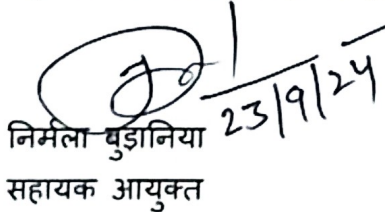 23/9/24
निर्मला बुडानिया
सहायक आयुक्त